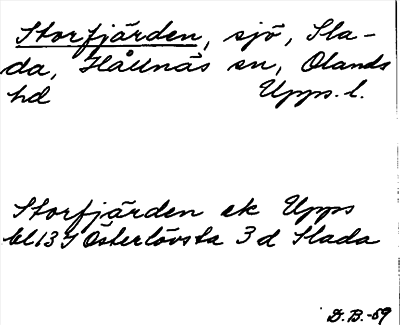 Storfjärden, sjö, Sla-
da, Hållnäs sn, Olands
hd Upps. l.
Storfjärden ek Upps
bl 13 I Österlövsta 3 d Slada
D.B.-59